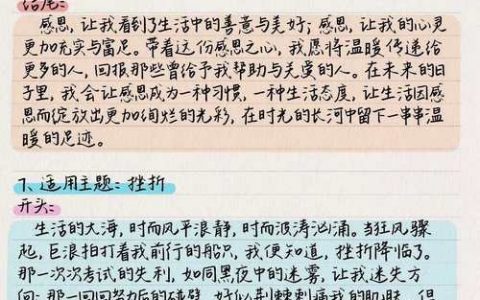 结尾:
感恩,让我看到了生活中的善意与美好;感恩,让我的心灵
更加充实与富足。带着这份感恩之心,我愿将温暖传递给
更多的人,回报那些曾给予我帮助与关爱的人。在未来的日
子里,我会让感恩成为一种习惯,一种生活态度,让生活因感
恩而绽放出更加绚烂的光彩,在时光的长河中留下一串串温
暖的足迹。
7、适用主题:挫折
开头:
生活的大海,时而风平浪静,时而波涛汹涌。当狂风骤
起,巨浪拍打着我前行的船只,我便知道,挫折降临了。
那一次次考试的失利,如同黑夜中的迷雾,让我迷失方
向;那一回回努力后的碰壁,好似荆棘刺痛我的脚踝。但